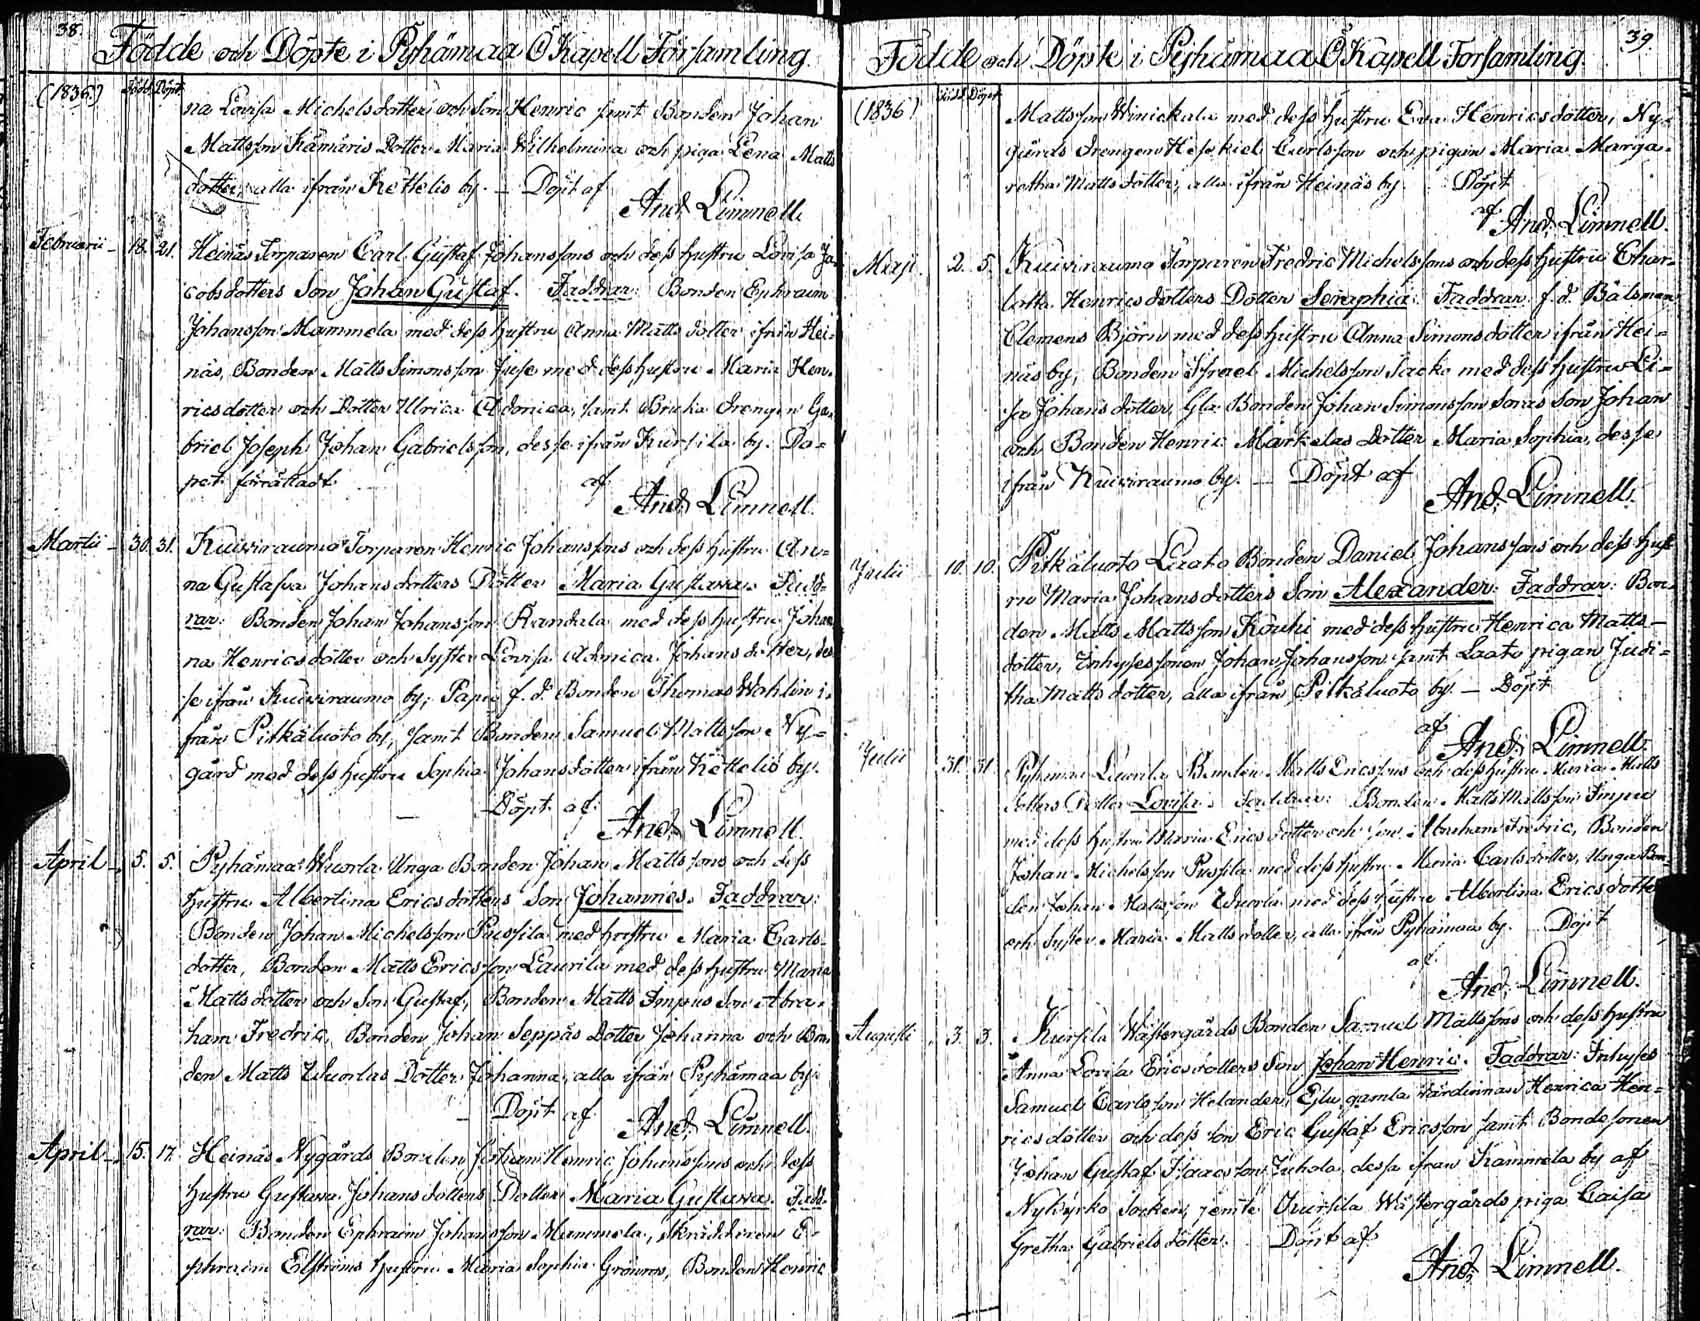 38.
Födde och Döpte i Pyhämaa Ö Kapell Församling.
(1836) Född. Döpt.
na Lovisa Michelsdotter och Son Henric samt Bonden Johan
Mattsson Kämäris Dotter Maria Wilhelmina och piga Lena Matts
dotter, alla ifrån Kettelis by. — Döpt af
And. Limnell.
Februarii — 18. 21. Heinäs Torparen Carl Gustaf Johanssons och dess hustru Lovisa Ja-
cobsdotters Son Johan Gustaf. Faddrar: Bonden Ephraim
Johansson Mammela med dess hustru Anna Matts dotter ifrån Hei-
näs, Bonden Matts Simonsson Juse med dess hustru Maria Hen-
ricsdotter och Dotter Ulrica Adonica, samt Bruka Drengen Ga-
briel Joseph Johan Gabrielsson, desse ifrån Kursila by. Do-
pet förrättadt af
And. Limnell.
Martii — 30. 31. Kuivirauma Torparen Henric Johanssons och dess hustru An-
na Gustafva Johansdotters Dotter Maria Gustava. Fadd-
rar: Bonden Johan Johansson Kandula med dess hustru Johan
na Henricsdotter och Syster Lovisa Adonica Johansdotter, des
se ifrån Kuivirauma by, f. d. Bonden Thomas Wahlin i-
från Pitkäluoto by, samt Bonden Samuel Mattsson Ny-
gård med dess hustru Sophia Johansdotter ifrån Kettelis by.
Döpt af
And. Limnell.
April — 5. 5. Pyhämaa Wuorla Unga Bonden Johan Mattssons och dess
hustru Albertina Ericsdotters Son Johannes. Faddrar:
Bonden Johan Michelsson Pussila med hustru Maria Carls-
dotter, Bonden Matts Ericsson Laurila med dess hustru Maria
Mattsdotter och Son Gustaf, Bonden Matts Impus Son Abra-
ham Fredric, Bonden Johan Seppäs Dotter Johanna och Bon
den Matts Wuorlas Dotter Johanna, alla ifrån Pyhämaa by.
Döpt af And. Limnell.
April — 15. 17. Heinäs Nygårds Bonden Johan Henric Johanssons och dess
hustru Gustava Johansdotters Dotter Maria Gustava. Fadd-
rar: Bonden Ephraim Johansson Mammela, Skräddaren E-
phraim Elfströms hustru Maria Sophia Grönros, Bonden Henric
39
Födde och Döpte i Pyhämaa Ö Kapell Församling.
(1836) Född. Döpt.
Mattsson Winickala med dess hustru Eva Henricsdotter, Ny-
gårds Drengen Hesekiel Carlsson och pigan Maria Marga-
retha Mattsdotter, alla ifrån Heinäs by. Döpt
af And. Limnell.
Maji 2. 5. Kuivirauma Torparen Fredric Michelssons och dess hustru Char-
lotta Henricsdotters Dotter Seraphia. Faddrar: f. d. Båtsman
Clemens Björn med dess hustru Anna Simonsdotter ifrån Hei-
näs by, Bonden Israel Michelsson Sacko med dess hustru Li-
sa Johansdotter, Gla Bonden Johan Simonsson Soras Son Johan
och Bonden Henric Markelas Dotter Maria Sophia, desse
ifrån Kuivirauma by. — Döpt af
And. Limnell.
Junii — 10. 10. Pitkäluoto Laato Bonden Daniel Johanssons och dess hust
ru Maria Johansdotters Son Alexander. Faddrar: Bon-
den Matts Mattsson Kouhi med dess hustru Henrica Matts-
dotter, Inhyses sonen Johan Johansson samt Laato pigan Judi-
tha Mattsdotter, alla ifrån Pitkäluoto by. — Döpt
af And. Limnell.
Julii 31. 31. Pyhämaa Laurila Bonden Matts Ericssons och dess hustru Maria Matts
dotters Dotter Lovisa. Faddrar: Bonden Matts Mattsson Impu
med dess hustru Maria Ericsdotter och son Abraham Fredric, Bonden
Johan Michelsson Pussila med dess hustru Maria Carlsdotter, Unga Bon-
den Johan Mattsson Wuorla med dess hustru Albertina Ericsdotter
och Syster Maria Mattsdotter, alla ifrån Pyhämaa by. Döpt
af
And. Limnell.
Augusti 3. 3. Kursila Wästergårds Bonden Samuel Mattssons och dess hustru
Anna Lovisa Ericsdotters Son Johan Henric. Faddrar: Inhyses
Samuel Carlsson Helander, gamla Värdinnan Henrica Hen-
ricsdotter och dess son Eric Gustaf Ericsson samt Bondesonen
Johan Gustaf Isaacsson Juhola, dessa ifrån Kammela by af
Nykyrko Socken, jemte Kursila Wästergårds piga Caisa
Gretha Gabrielsdotter. Döpt af
And. Limnell.